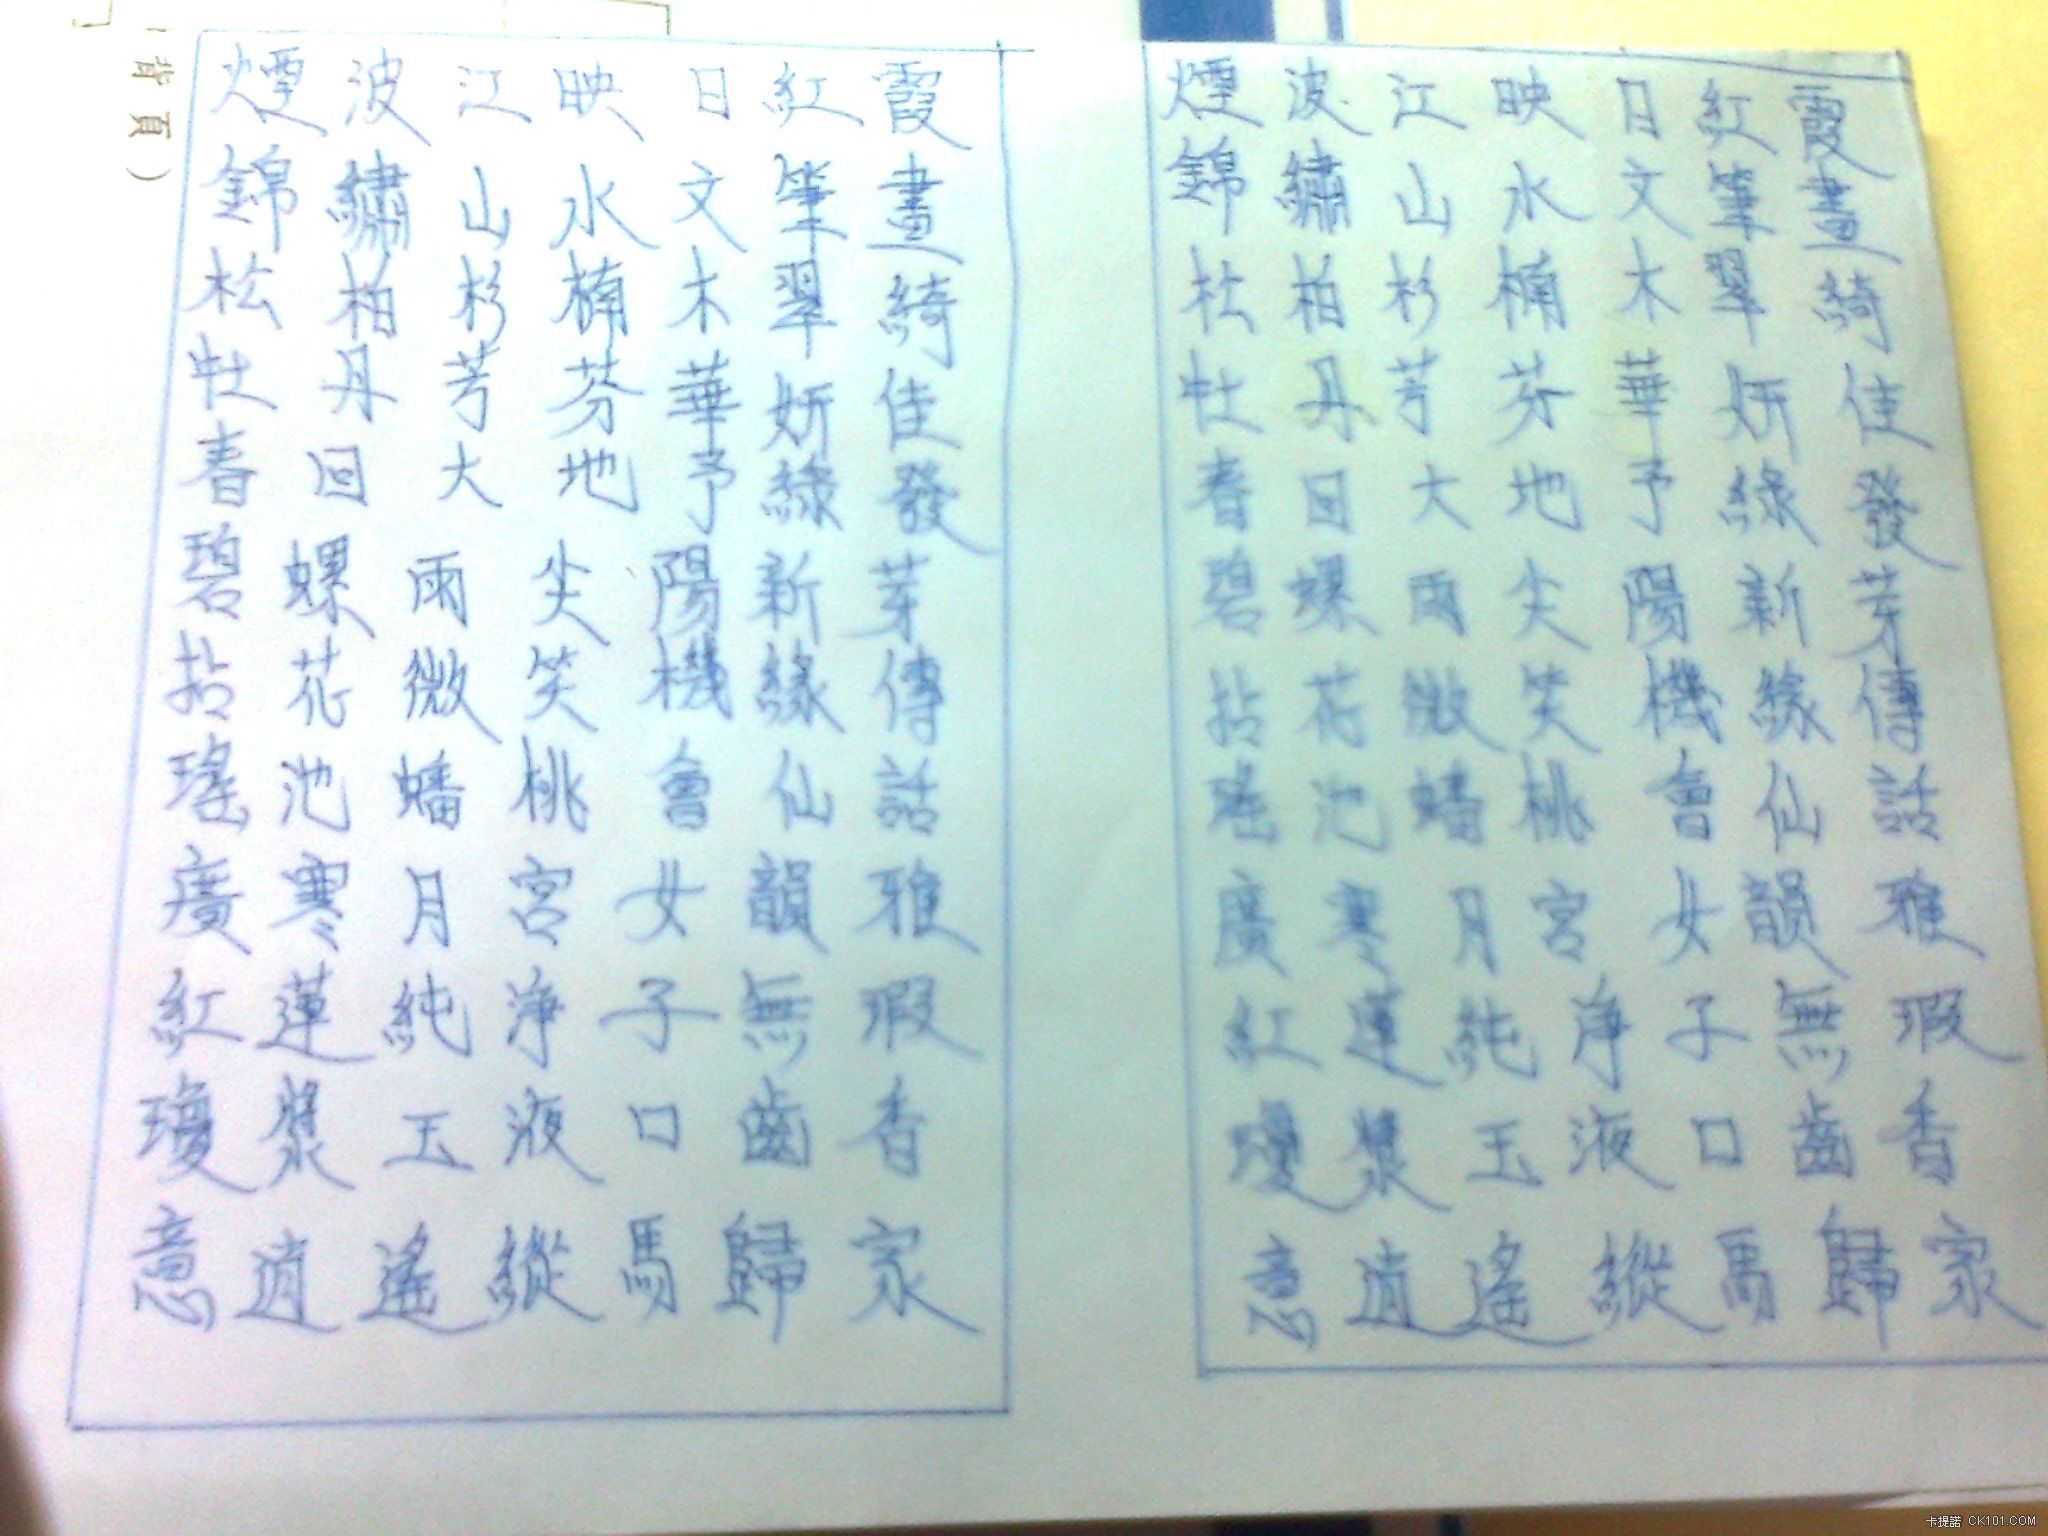 背頁）
煙波江映日紅霞
錦繡山水文筆畫
松柏杉楠木翠綺
牡丹芳芬華妍佳
春回大地予綠發
碧螺雨尖陽新芽
拈花微笑機緣傳
瑤池蟠桃會仙話
廣寒月宮女韻雅
紅蓮純淨子無瑕
瓊漿玉液口齒香
意逍遙縱馬歸家
煙波江映日紅霞
錦繡山水文筆畫
松柏杉楠木翠綺
牡丹芳芬華妍佳
春回大地予綠發
碧螺雨尖陽新芽
拈花微笑機緣傳
瑤池蟠桃會仙話
廣寒月宮女韻雅
紅蓮純淨子無瑕
瓊漿玉液口齒香
意逍遙縱馬歸家
卡提諾 CK101.COM